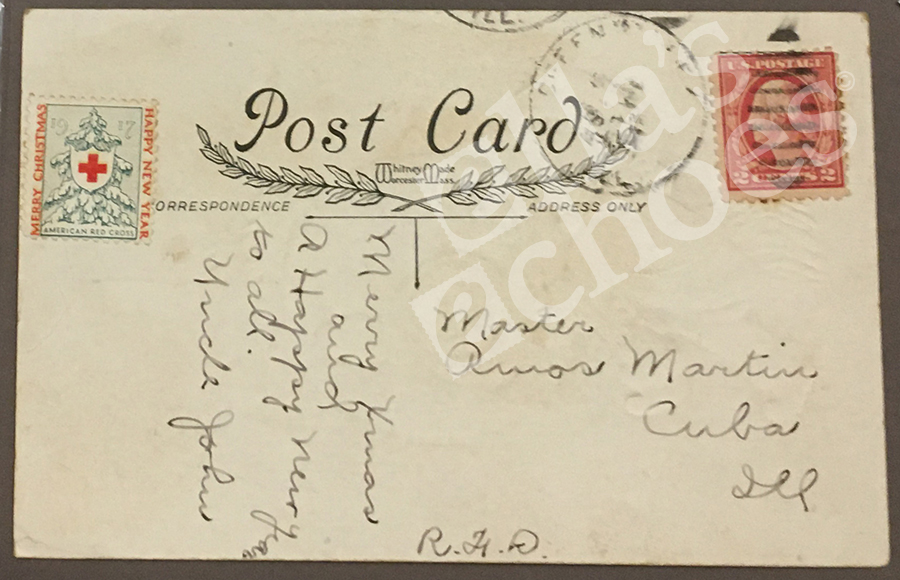 ILL.
U.S. POSTAGE
2 2
MERRY CHRISTMAS
HAPPY NEW YEAR
19 17
AMERICAN RED CROSS
Post Card
Whitney Made
Worcester Mass.
CORRESPONDENCE
ADDRESS ONLY
Merry Xmas
and
A Happy New
to all.
Uncle John
Master
Amos Martin
Cuba
Ill
R.F.D.
Ella's
echoes
®